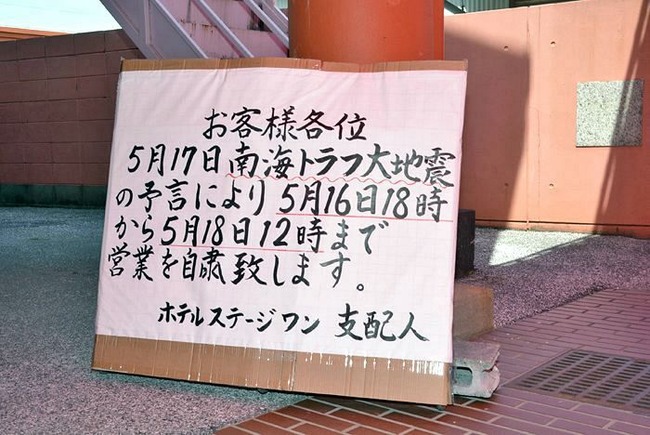 お客様各位
5月17日南海トラフ大地震
の予言により5月16日18時
から5月18日12時まで
営業を自粛致します。
ホテルステージワン 支配人